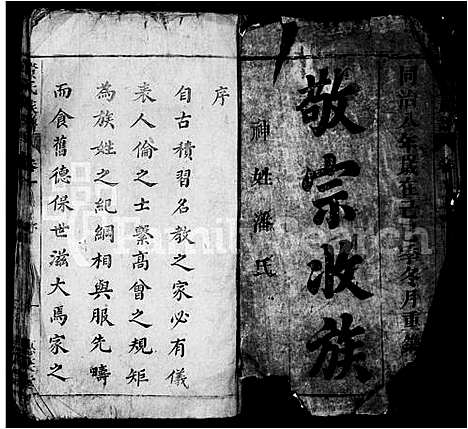 同治八年歲在己巳季冬月重
敬宗收族
神姓潘氏
序
自古積習名教之家必有儀
表人倫之士繫高曾之規矩
為族姓之紀綱相與服先疇
而食舊德保世滋大焉家之
FamilySearch